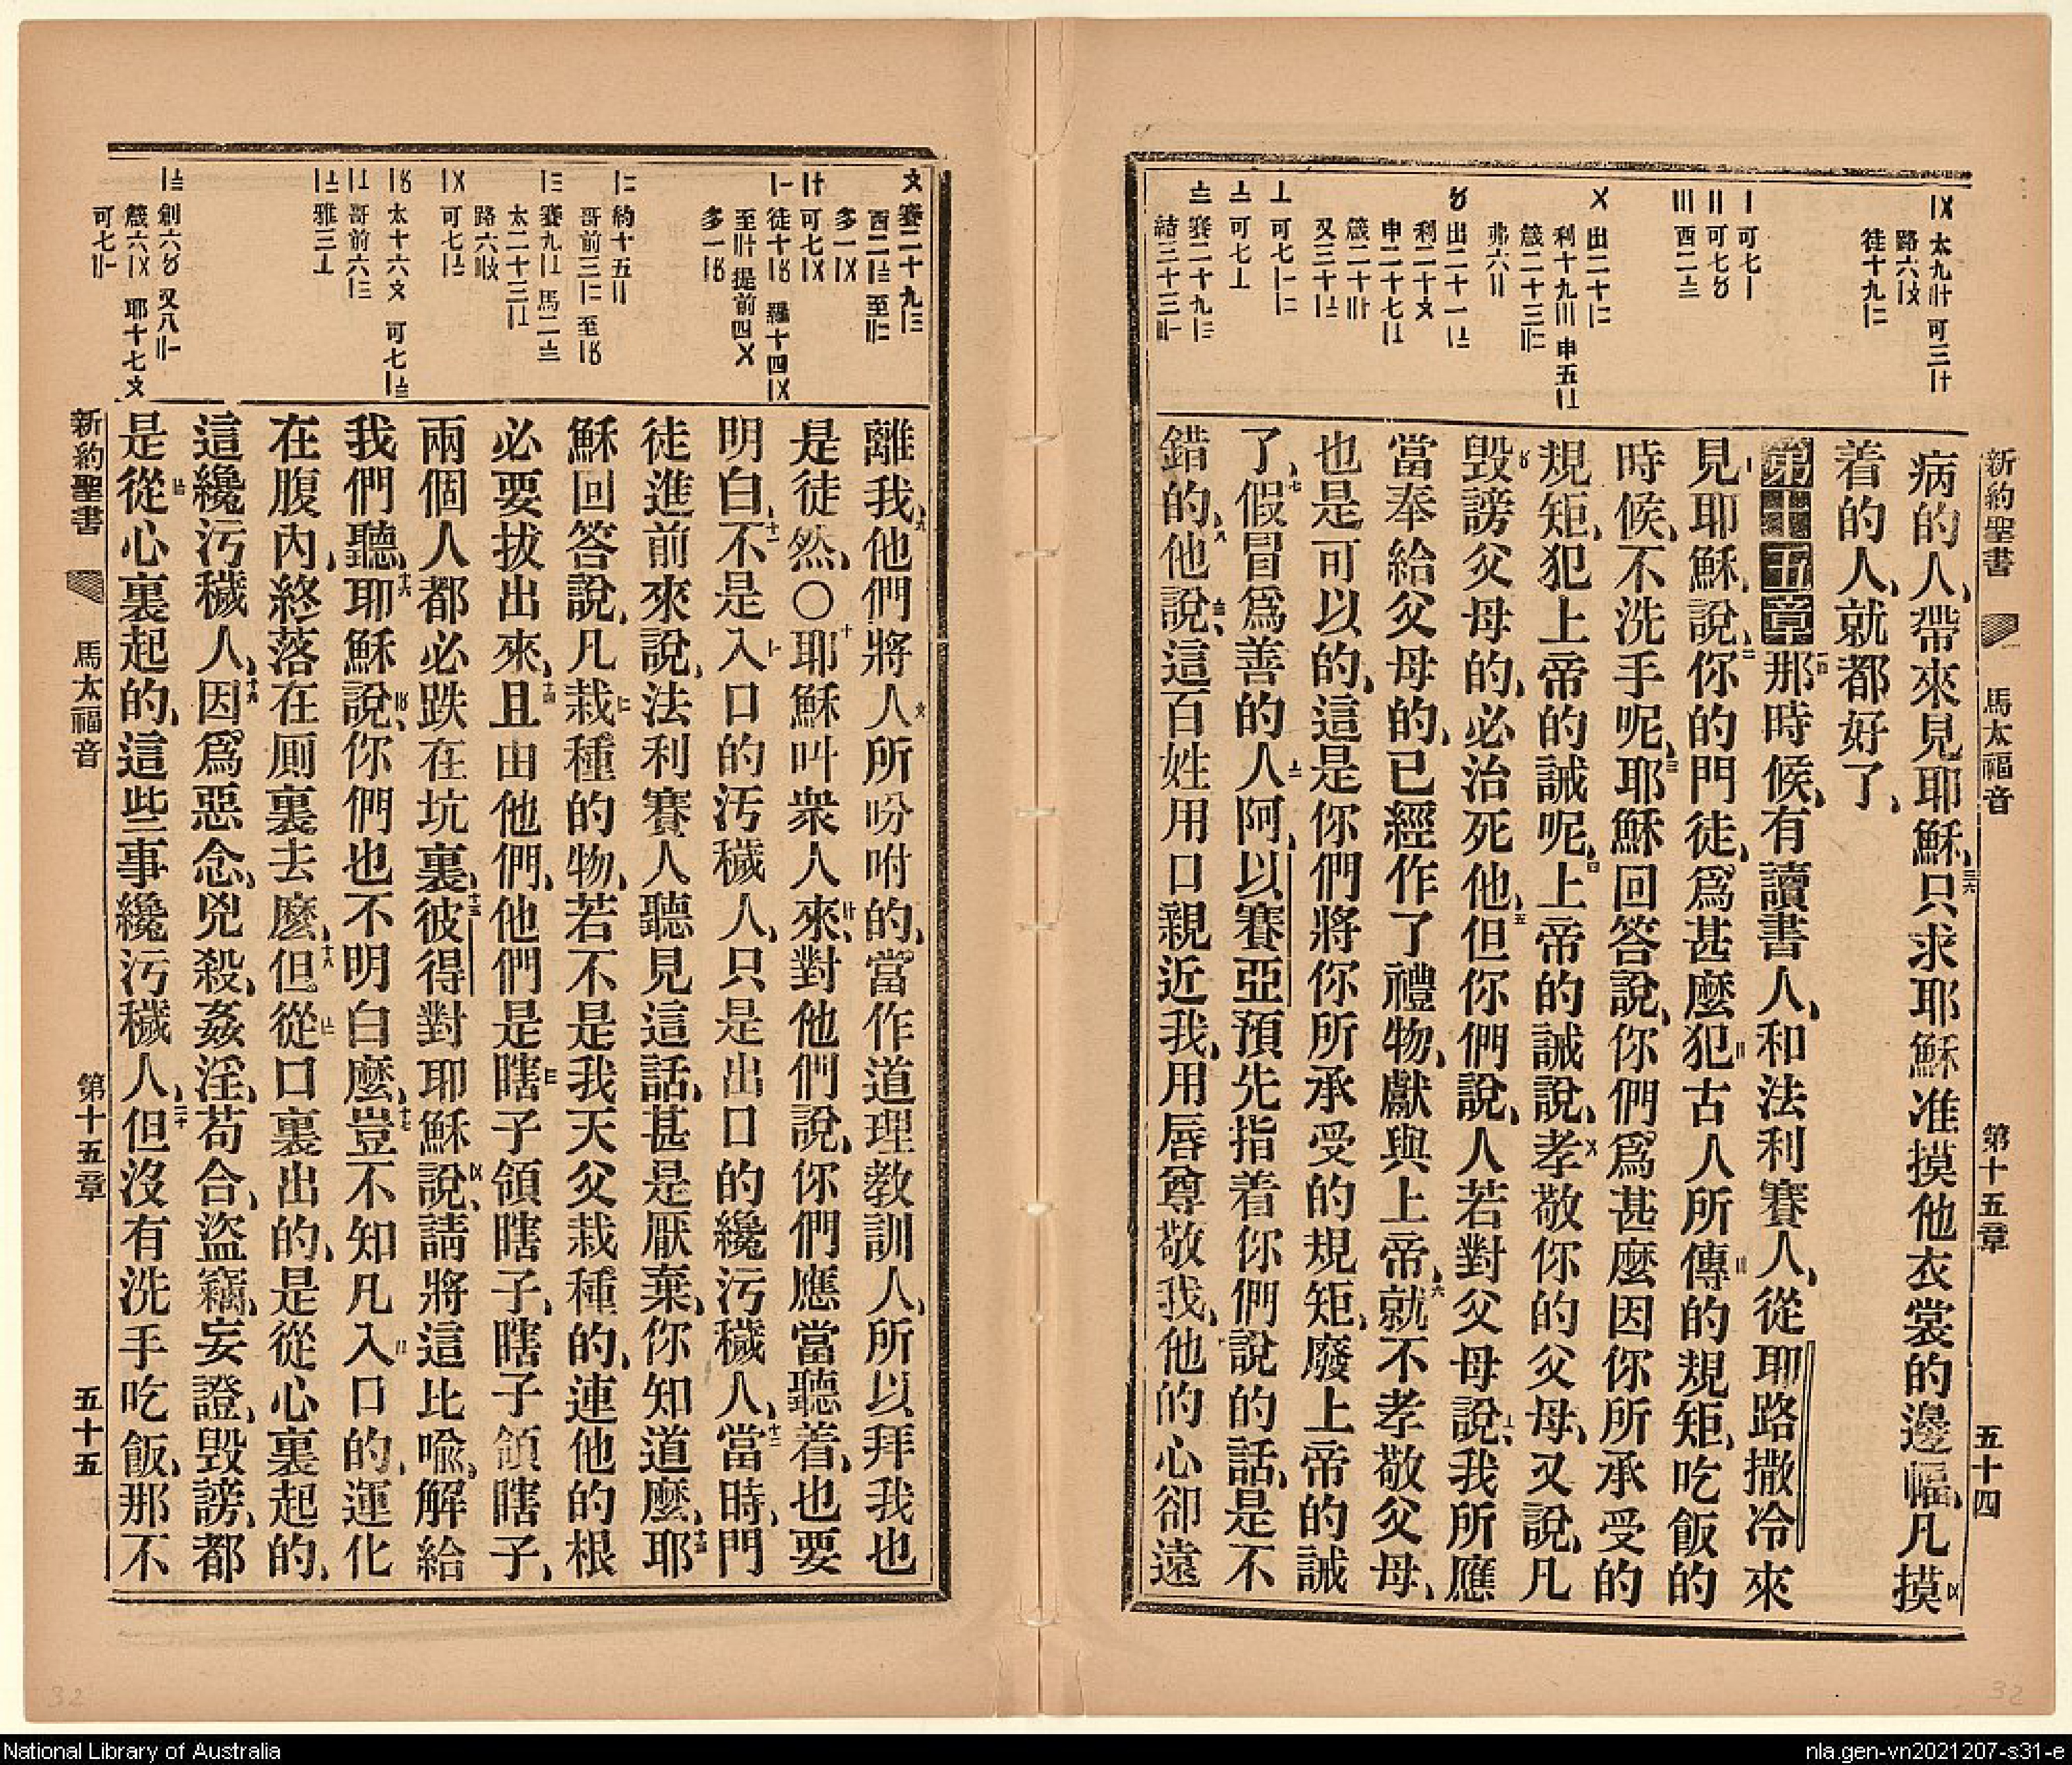 新約聖書 馬太福音 第十五章 五十四
病的人、帶來見耶穌、只求耶穌准摸他衣裳的邊幅、凡摸
着的人、就都好了、
第十五章那時候、有讀書人、和法利賽人、從耶路撒冷來
見耶穌、說、你的門徒、爲甚麼犯古人所傳的規矩、吃飯的
時候、不洗手呢、耶穌回答說、你們爲甚麼因你所承受的
規矩、犯上帝的誡呢、上帝的誡說、孝敬你的父母、又說、凡
毀謗父母的、必治死他、但你們說、人若對父母說、我所應
當奉給父母的、已經作了禮物、獻與上帝、就不孝敬父母、
也是可以的、這是你們將你所承受的規矩、廢上帝的誡
了、假冒爲善的人阿、以賽亞預先指着你們說的話、是不
錯的、他說、這百姓用口親近我、用唇尊敬我、他的心卻遠
離我、他們將人所吩咐的、當作道理教訓人、所以拜我也
是徒然、〇耶穌叫衆人來、對他們說、你們應當聽着、也要
明白、不是入口的污穢人、只是出口的纔污穢人、當時、門
徒進前來說、法利賽人聽見這話、甚是厭棄、你知道麼、耶
穌回答說、凡栽種的物、若不是我天父栽種的、連他的根
必要拔出來、且由他們、他們是瞎子領瞎子、瞎子領瞎子、
兩個人都必跌在坑裏、彼得對耶穌說、請將這比喩、解給
我們聽、耶穌說、你們也不明白麼、豈不知凡入口的、運化
在腹內、終落在厠裏去麼、但從口裏出的、是從心裏起的、
這纔污穢人、因爲惡念、兇殺、姦淫、苟合、盜竊、妄證、毀謗、都
是從心裏起的、這些事纔污穢人、但沒有洗手吃飯、那不
新約聖書 馬太福音 第十五章 五十五
32
32
National Library of Australia
nla.gen-vn2021207-s31-e